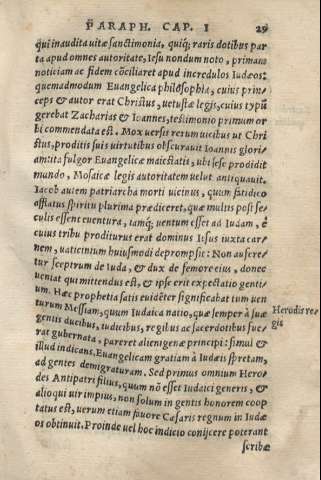 PARAPH. CAP. I 29
qui inaudita uitæ sanctimonia, quiq; raris dotibus par
ta apud omnes autoritate, Iesu nondum noto, primam
noticiam ac fidem cõciliaret apud incredulos Iudæos:
quemadmodum Euangelica philosophia, cuius prin
ceps & autor erat Christus, uetustæ legis, cuius typũ
gerebat Zacharias & Ioannes, testimonio primum or
bi commendata est. Mox uersis rerum uicibus ut Chri
stus, proditis suis uirtutibus obscurauit Ioannis glori
am: ita fulgor Euangelicæ maiestatis, ubi sese prodidit
mundo, Mosaicæ legis autoritatem uelut antiquauit.
Iacob autem patriarcha morti uicinus, quum fatidico
afflatus spiritu plurima prædiceret, quæ multis post se
culis essent euentura, iamq; uentum esset ad Iudam, è
cuius tribu proditurus erat dominus Iesus iuxta car
nem, uaticinium huiusmodi deprompsit: Non aufere
tur sceptrum de Iuda, & dux de femore eius, donec
ueniat qui mittendus est, & ipse erit expectatio genti
um. Hæc prophetia satis euidẽter significabat tum uen
turum Messiam, quum Iudaica natio, quæ semper à suæ
gentis ducibus, iudicibus, regibus ac sacerdotibus fue
rat gubernata, pareret alienigenæ principi: simul &
illud indicans, Euangelicam gratiam à Iudæis spretam,
ad gentes demigraturam. Sed primus omnium Hero
des Antipatri filius, quum nõ esset Iudaici generis, &
alioqui uir impius, non solum in gentis honorem coop
tatus est, uerum etiam fauore Cæsaris regnum in Iudæ
os obtinuit. Proinde uel hoc indicio conijcere poterant
scribæ
Herodis re
gis